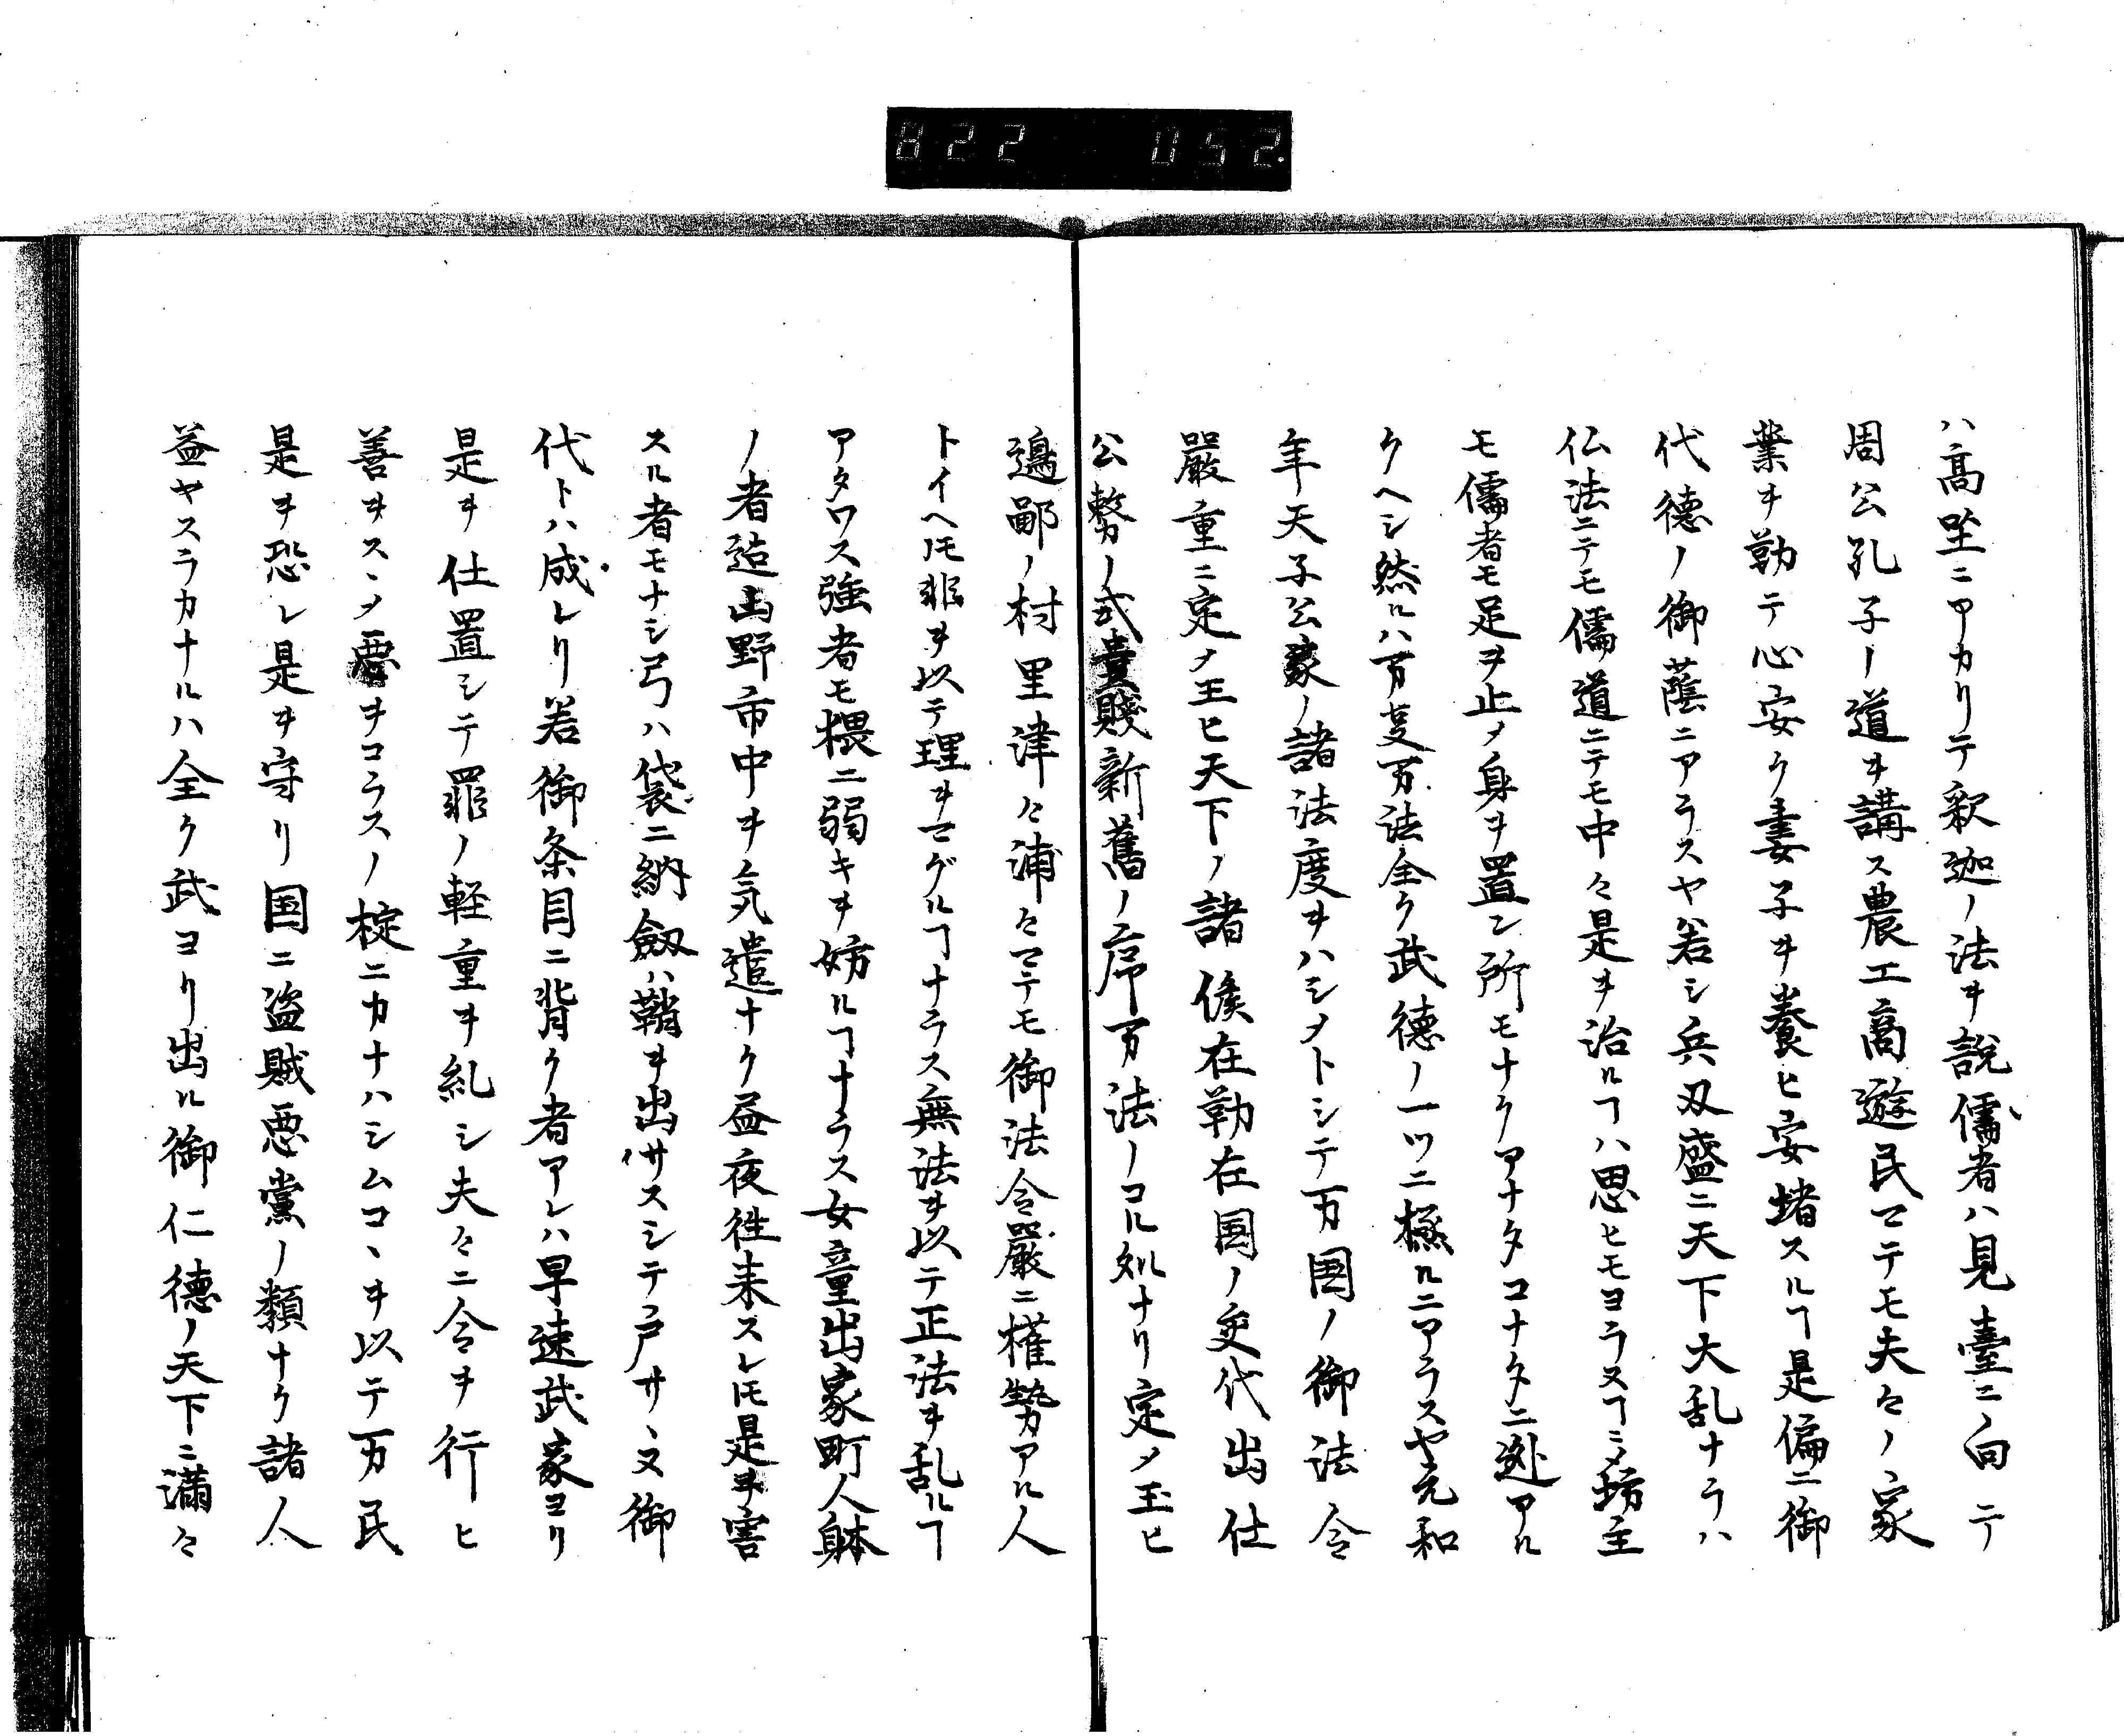 822 052.
ハ高坐ニアカリテ釈迦ノ法ヲ説儒者ハ見臺ニ向テ
周公孔子ノ道ヲ講ス農工商遊民マテモ夫々ノ家
業ヲ勤テ心安ク妻子ヲ養ヒ安堵スルヿ是偏ニ御
代德ノ御蔭ニアラスヤ若シ兵刄盛ニ天下大乱ナラハ
仏法ニテモ儒道ニテモ中々是ヲ治ルヿハ思ヒモヨラヌヿニメ坊主
モ儒者モ足ヲ止メ身ヲ置ン所モナクアナタコナタニ迯アル
クヘシ然ルハ万叓万法全ク武德ノ一ツニ極ルニアラスヤ元和
年天子公家ノ諸法度ヲハシメトシテ万国ノ御法令
嚴重ニ定メ玉ヒ天下ノ諸侯在勤在国ノ交代出仕
公㔟ノ式貴賤新舊ノ序万法ノコル処ナリ定メ玉ヒ
邉鄙ノ村里津々浦々マテモ御法令嚴ニ權勢アル人
トイヘ𪜈非ヲ以テ理ヲマゲルヿナラス無法ヲ以テ正法ヲ乱ルヿ
アタワス強者モ猥ニ弱キヲ妨ルヿナラス女童出家町人躰
ノ者迠山野市中ヲ気遣ナク益夜徃来スレ𪜈是ヲ害
スル者モナシ弓ハ袋ニ納劔ハ鞘ヲ出サスシテ戸サヽヌ御
代トハ成レリ若御条目ニ背ク者アレハ早速武家ヨリ
是ヲ仕置シテ罪ノ軽重ヲ糺シ夫々ニ令ヲ行ヒ
善ヲスヽメ悪ヲコラスノ掟ニカナハシムコヽヲ以テ万民
是ヲ恐レ是ヲ守リ国ニ盗賊悪黨ノ類ナク諸人
益ヤスラカナルハ全ク武ヨリ出ル御仁德ノ天下ニ満々